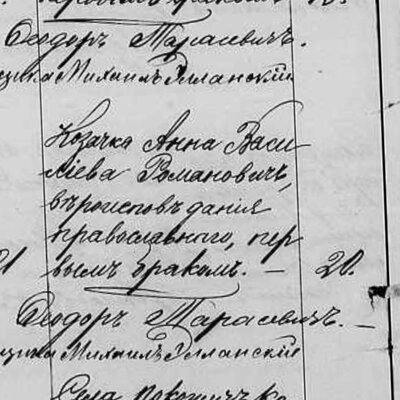 первымъ бракомъ. 18.
Ѳеодоръ Тарасевичъ.
Михаилъ Уллянскій
Козачка Анна Васи
ліева Романовичъ,
вѣроисповѣданія
православнаго, пер
21 вымъ бракомъ. — 20.
Ѳеодоръ Тарасевичъ. —
Михаилъ Уллянскій
Села